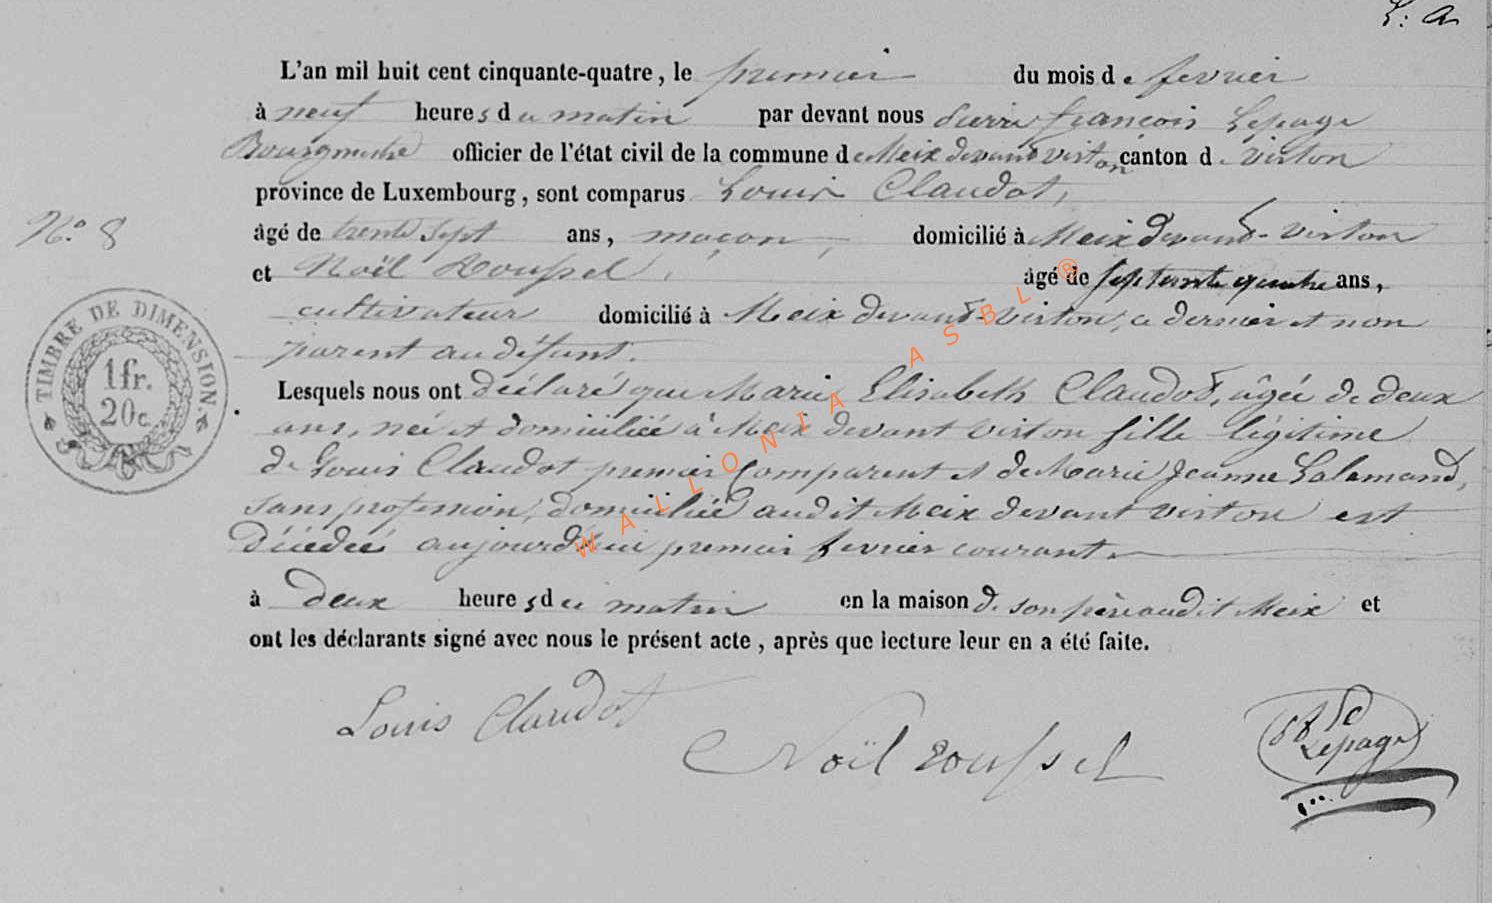 L: A
L'an mil huit cent cinquante-quatre, le premier du mois de fevrier
à neuf heures du matin par devant nous Pierre françois Lepage
Bourgmestre officier de l'état civil de la commune de Meix devant virton canton de virton
province de Luxembourg, sont comparus Louis Claudot,
N.o 8
âgé de trente sept ans, maçon, domicilié à Meix devant-virton
et Noël Roussel, âgé de septante quatre ans,
cultivateur domicilié à Meix devant-virton, ce dernier et non
parent au défunt.
Lesquels nous ont déclaré que Marie Elisabeth Claudot, âgée de deux
ans, née et domiciliée à Meix devant virton fille légitime
de Louis Claudot premier Comparent et de Marie Jeanne Lalemand,
sans profession, domiciliée audit Meix devant virton est
décédée aujourd'hui premier fevrier courant.
à deux heures du matin en la maison de son père audit Meix et
ont les déclarants signé avec nous le présent acte, après que lecture leur en a été faite.
Louis Claudot
Noël roussel
Lepage
TIMBRE DE DIMENSION.
1fr.
20c.
WALLONIA ASBL ®